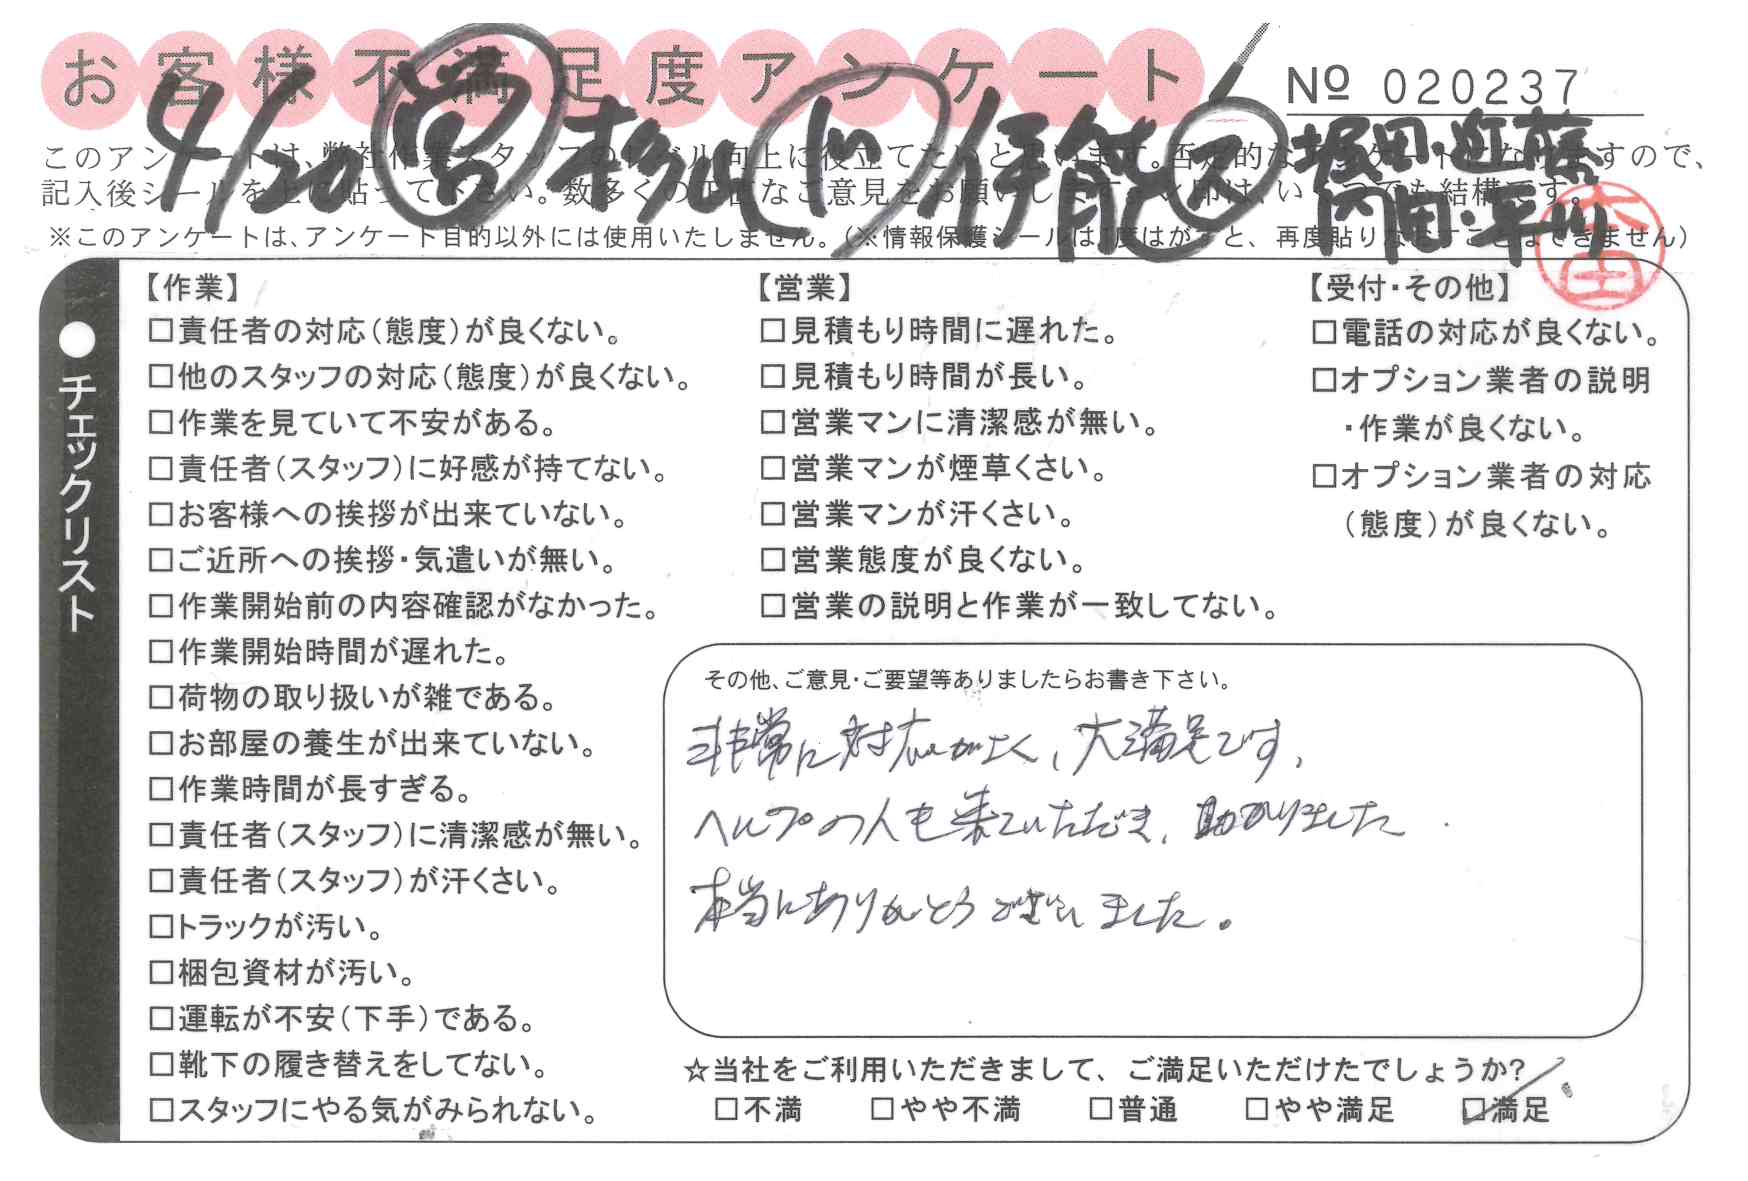 お客様不満足度アンケート
№ 020237
4/20 営 杉山 伊能 堀田・近藤
内田・平川
このアンケートは、弊社作業スタッフのレベル向上に役立てたいと思います。否定的なアンケートになりますので、
記入後シールを上に貼って下さい。数多くの正直なご意見をお願いします。
※このアンケートは、アンケート目的以外には使用いたしません。(※情報保護シールは1度はがすと、再度貼りなおすことはできません)
チェックリスト
【作業】
□責任者の対応(態度)が良くない。
□他のスタッフの対応(態度)が良くない。
□作業を見ていて不安がある。
□責任者(スタッフ)に好感が持てない。
□お客様への挨拶が出来ていない。
□ご近所への挨拶・気遣いが無い。
□作業開始前の内容確認がなかった。
□作業開始時間が遅れた。
□荷物の取り扱いが雑である。
□お部屋の養生が出来ていない。
□作業時間が長すぎる。
□責任者(スタッフ)に清潔感が無い。
□責任者(スタッフ)が汗くさい。
□トラックが汚い。
□梱包資材が汚い。
□運転が不安(下手)である。
□靴下の履き替えをしてない。
□スタッフにやる気がみられない。
【営業】
□見積もり時間に遅れた。
□見積もり時間が長い。
□営業マンに清潔感が無い。
□営業マンが煙草くさい。
□営業マンが汗くさい。
□営業態度が良くない。
□営業の説明と作業が一致してない。
【受付・その他】
□電話の対応が良くない。
□オプション業者の説明
・作業が良くない。
□オプション業者の対応
(態度)が良くない。
その他、ご意見・ご要望等ありましたらお書き下さい。
非常に対応がよく、大満足です、
ヘルプの人も来ていただき、助かりました.
本当にありがとうございました。
☆当社をご利用いただきまして、ご満足いただけたでしょうか?
□不満 □やや不満 □普通 □やや満足 □満足